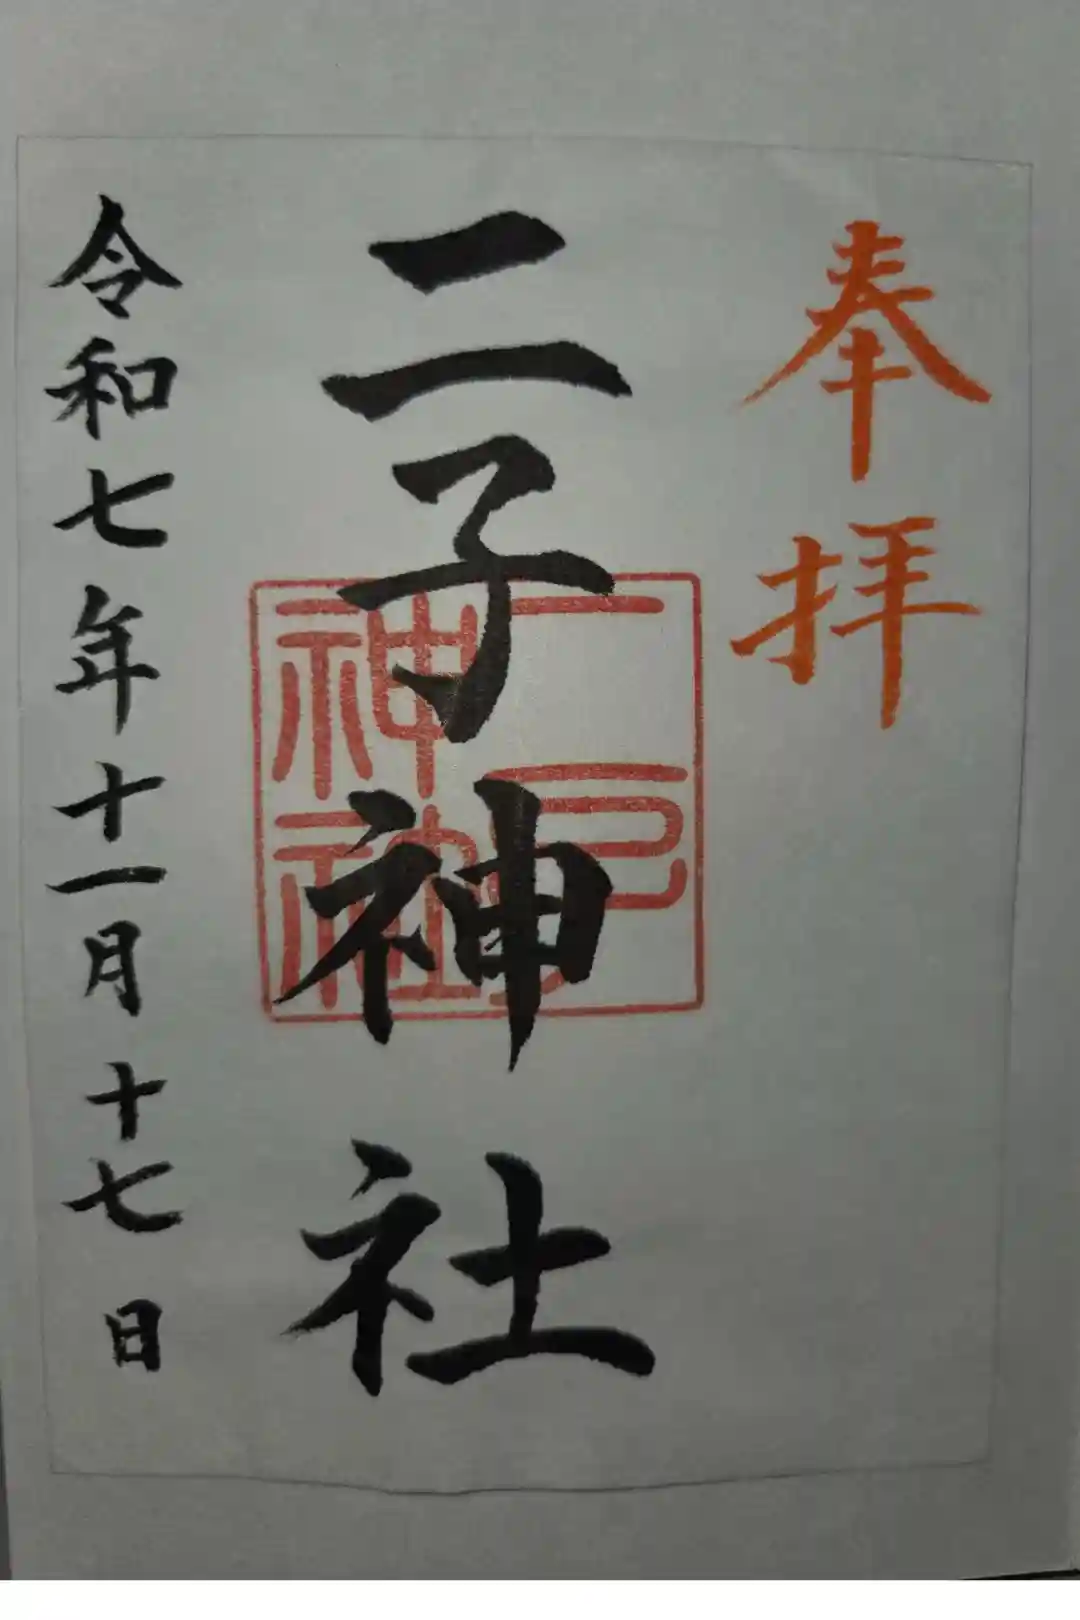 奉拝
二子神社
神社
令和七年十一月十七日